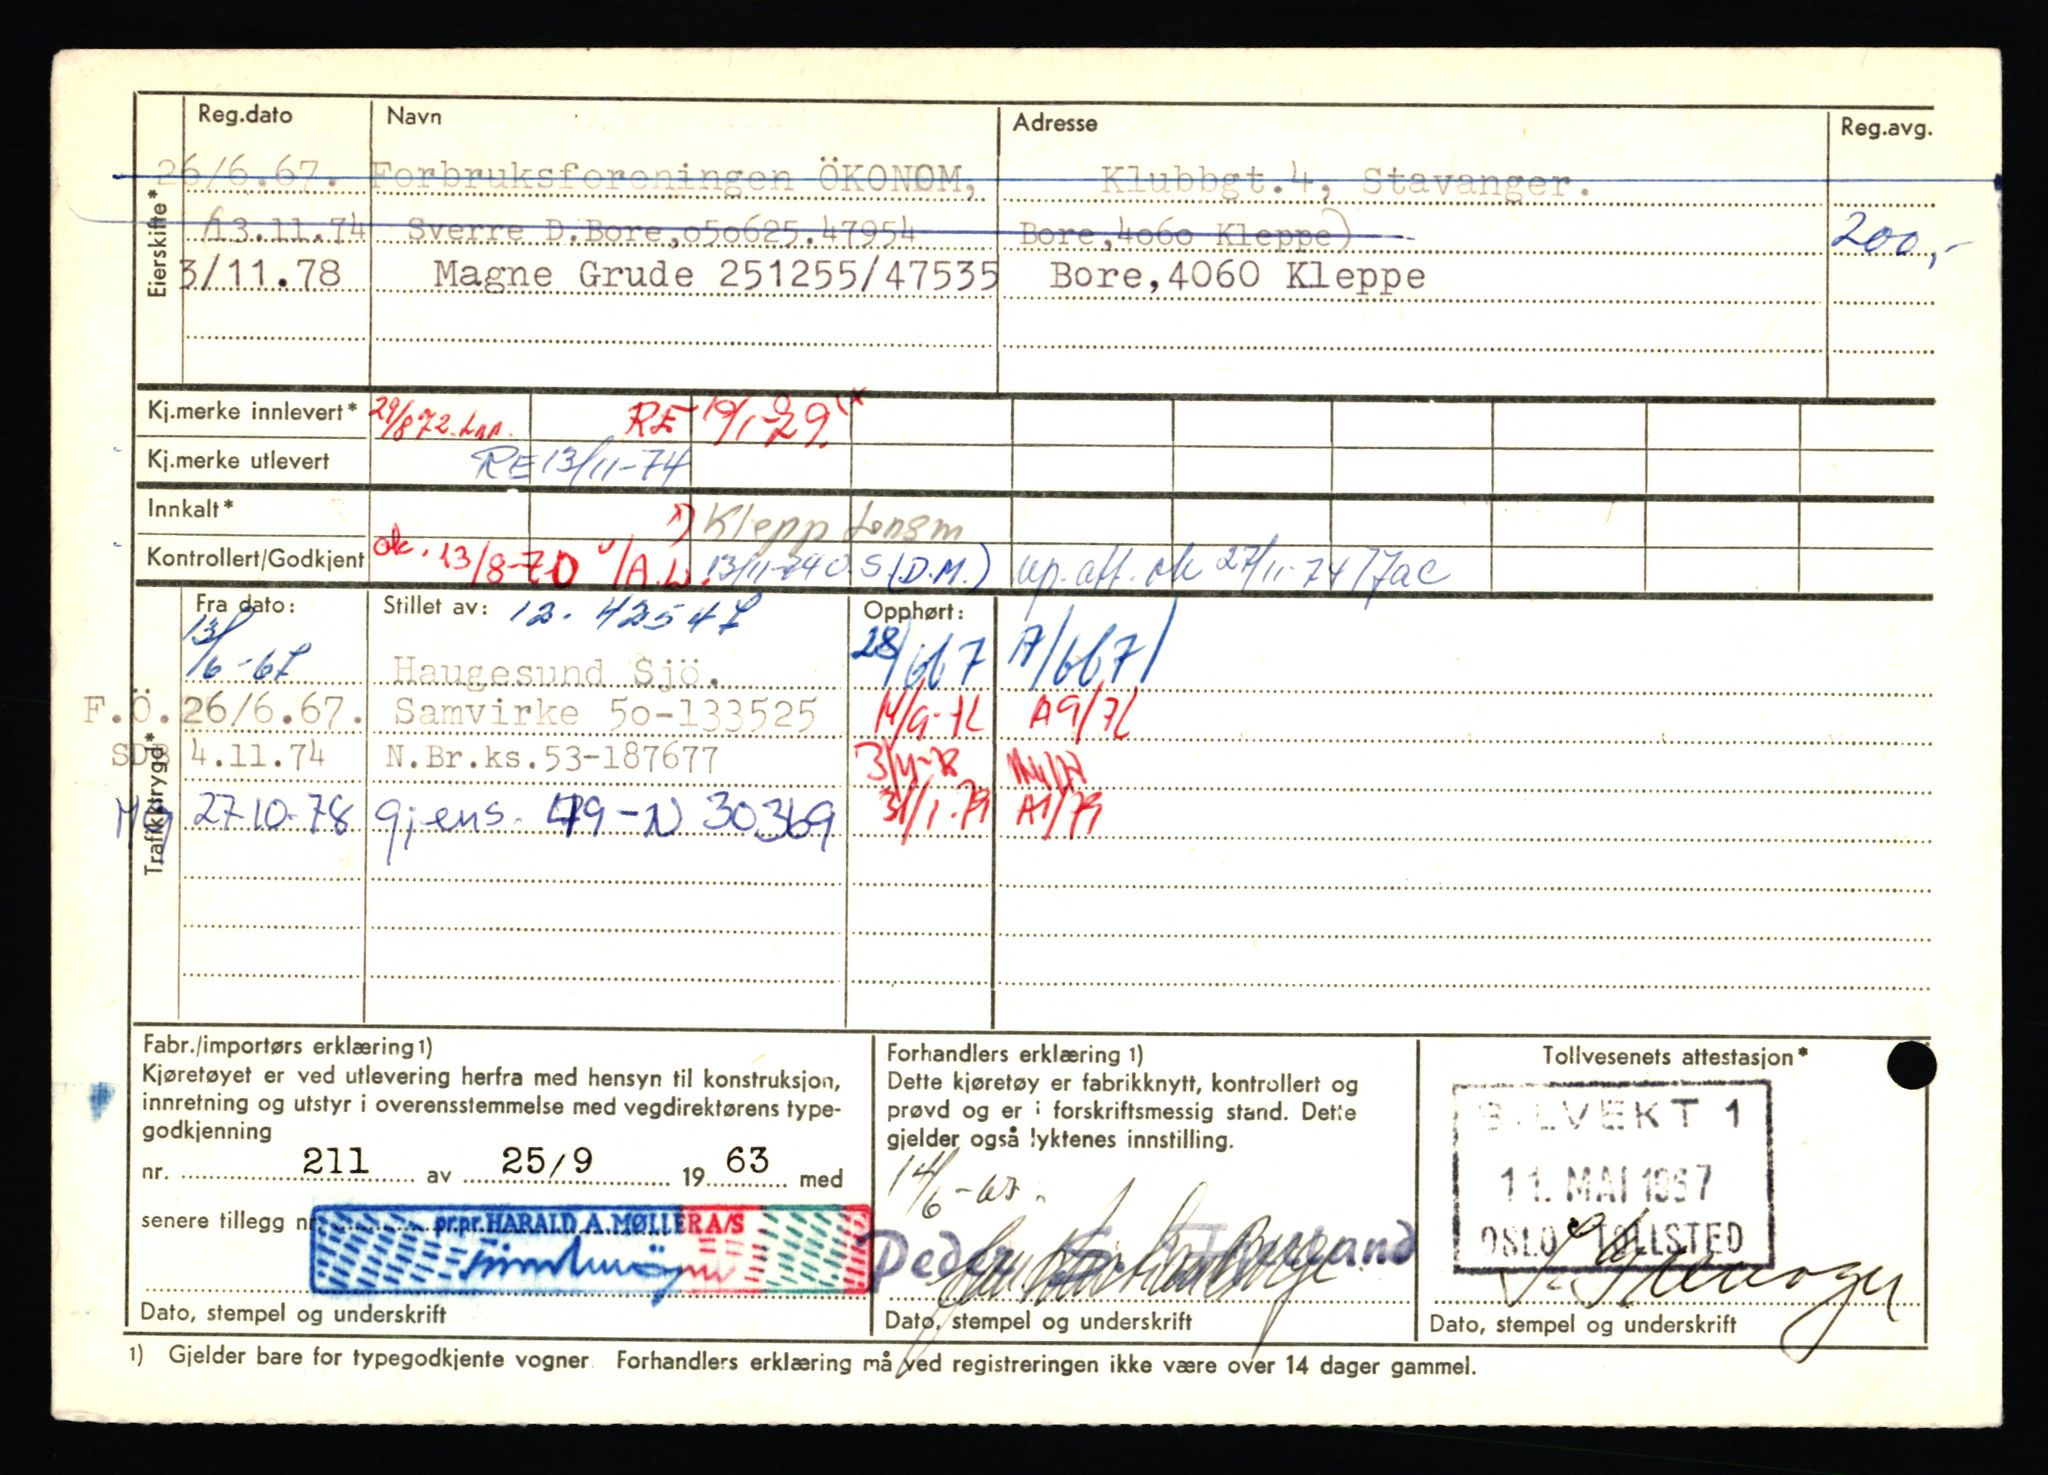 Reg.dato Navn Adresse Reg.avg.
Eierskifte*
26/6.67. Forbruksforeningen ÖKONOM, Klubbgt.4, Stavanger.
(13.11.74 Sverre D.Bore,050625.47954 Bore,4060 Kleppe) 200,-
3/11.78 Magne Grude 251255/47535 Bore,4060 Kleppe
Kj.merke innlevert* 29/8 72. RE 19/1-79
Kj.merke utlevert RE 13/11-74
Innkalt* Klepp
Kontrollert/Godkjent ok. 13/8-70 13/11-74 O.S (D.M.) ok 27/11-74
Trafikktrygd*
Fra dato: Stillet av: 12. 42547 Opphørt:
13/6-67 Haugesund Sjö. 28/667 A/667
F.Ö. 26/6.67. Samvirke 50-133525 A9/72
SDB 4.11.74 N.Br.ks.53-187677
MG 27-10-78 gjens. 479-N 30369 31/1.79 A1/79
Fabr./importørs erklæring 1)
Kjøretøyet er ved utlevering herfra med hensyn til konstruksjon,
innretning og utstyr i overensstemmelse med vegdirektørens type-
godkjenning
nr. 211 av 25/9 19 63 med
senere tillegg nr.
pr.pr. HARALD A. MØLLER A/S
Dato, stempel og underskrift
Forhandlers erklæring 1)
Dette kjøretøy er fabrikknytt, kontrollert og
prøvd og er i forskriftsmessig stand. Dette
gjelder også lyktenes innstilling.
14/6-67.
Dato, stempel og underskrift
Tollvesenets attestasjon*
BILVEKT 1
11. MAI 1967
OSLO TOLLSTED
Dato, stempel og underskrift
1) Gjelder bare for typegodkjente vogner. Forhandlers erklæring må ved registreringen ikke være over 14 dager gammel.